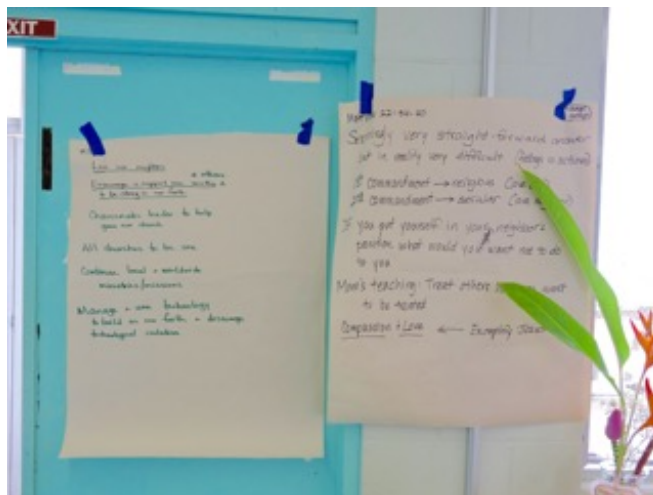 EXIT
Love one another
Encourage + support our
to be strong in our faith
Charismatic leader to help
grow our church
All churches to be one
Continue local + worldwide
ministries/missions
Manage + use technology
to build on our faith + discourage
technological isolation
22:36-40
Seemingly very straight-forward answer
yet in reality very difficult (feelings in actions)
1st commandment → religious (love
2nd commandment → secular (love
If you put yourself in your neighbor's
position what would you want me to do
to you
Mom's teaching: Treat others want
to be treated
Compassion + Love ← Exemplify Jesus